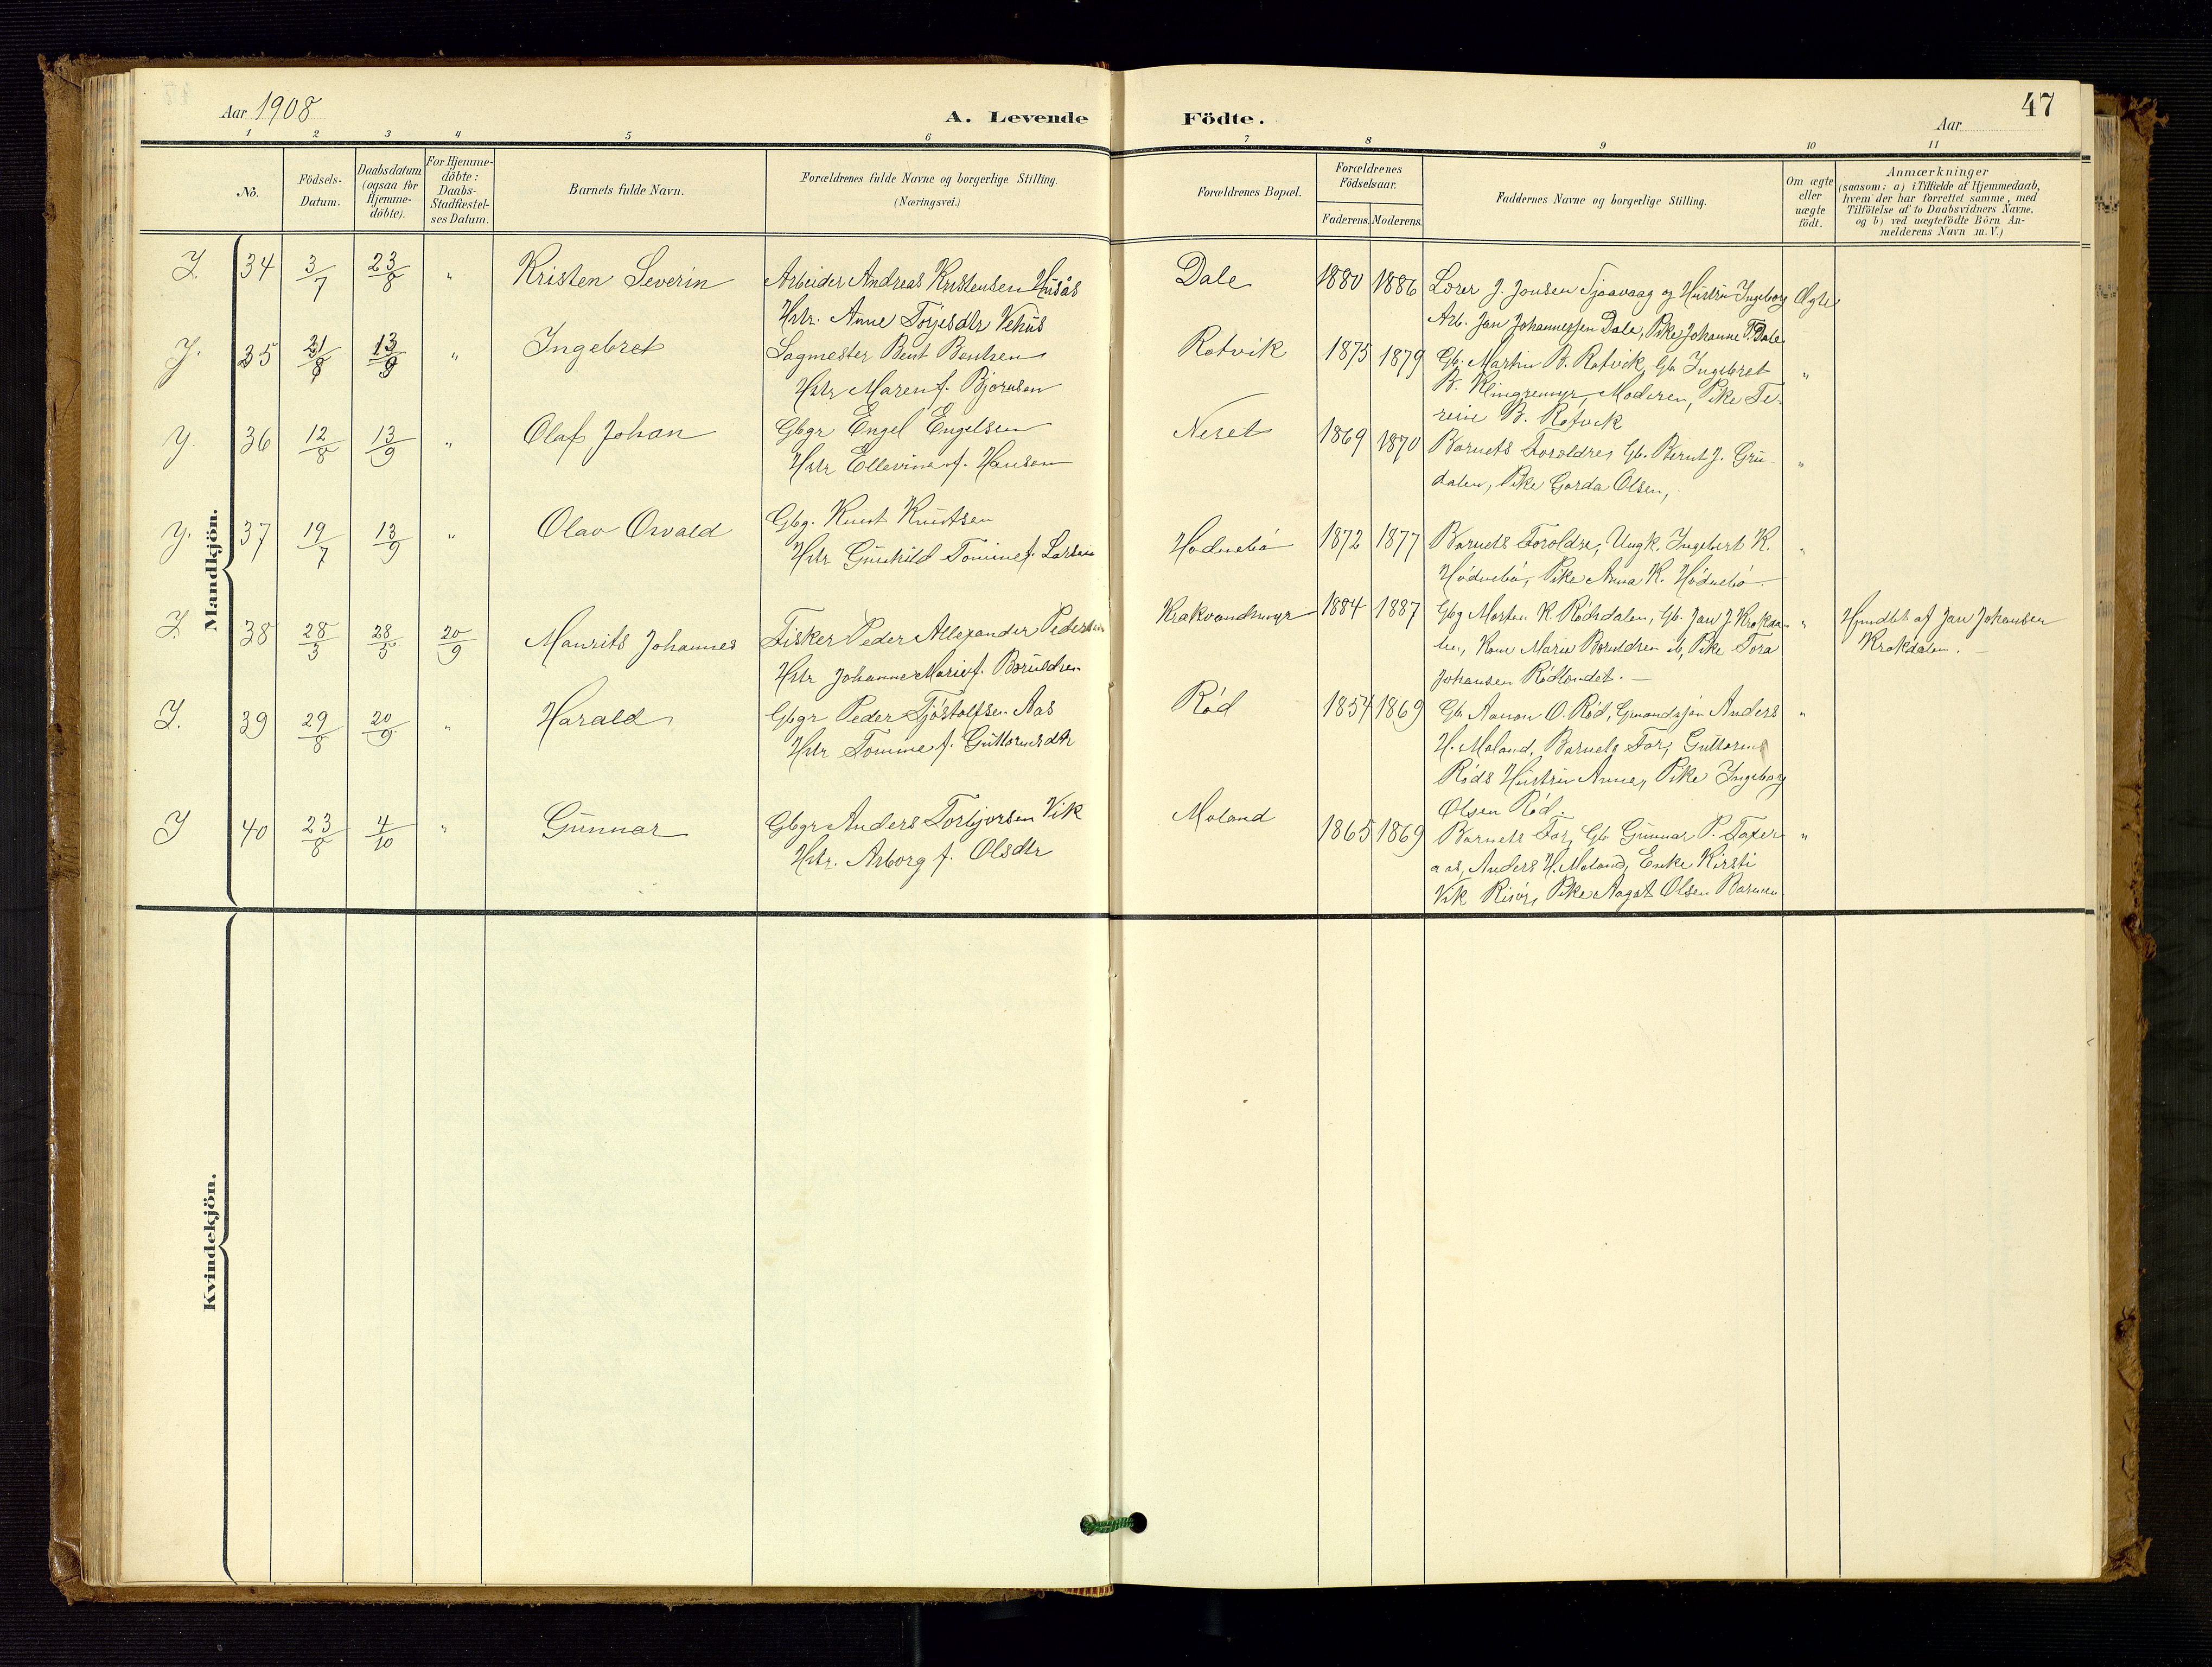 Aar 1908
A. Levende Födte.
Aar
47
1 2 3 4 5 6 7 8 9 10 11
No.
Födsels-Datum.
Daabsdatum (ogsaa for Hjemme-döbte).
For Hjemme-döbte: Daabs-Stadfæstel-ses Datum.
Barnets fulde Navn.
Forældrenes fulde Navne og borgerlige Stilling.
(Næringsvei.)
Forældrenes Bopæl.
Forældrenes Födselsaar.
Faderens. Moderens.
Faddernes Navne og borgerlige Stilling.
Om ægte eller uægte födt.
Anmærkninger
(saasom: a) i Tilfælde af Hjemmedaab,
hvem der har forrettet samme, med
Tilföielse af to Daabsvidners Navne,
og b) ved uægtefödte Börn An-
melderens Navn m. V.)
Mandkjön.
J. 34 3/7 23/8 " Kristen Severin
Arbeider Andreas Kristensen Husås
Hstr. Anne Torjesdtr Vehus
Dale 1880 1886
Lærer J. Jonsen Sjaavaag og Hustru Ingeborg
Arb. Jan Johannessen Dale, Pike Johanne T. Dale
Ægte
J. 35 21/8 13/9 " Ingebret
Sagmester Bent Bentsen
Hstr Maren f. Bjornsen
Rotvik 1875 1879
Gb. Martin B. Rotvik, Gb Ingebret
B. Klingremyr, Moderen, Pike Te-
resie B. Rotvik
"
J. 36 12/8 13/9 " Olaf Johan
Gbgr Engel Engelsen
Hstr Ellevine f. Hansen
Neset 1869 1870
Barnets Foroldre, Gb. Bernt J. Gru-
dalen, Pike Garda Olsen,
"
J. 37 19/7 13/9 " Olav Osvald
Gbg. Knut Knutsen
Hstr Gunhild Tomine f. Larsen
Hodnebø 1872 1877
Barnets Foroldre, Ungk. Ingebert K.
Hødnebø, Pike Anna K. Hødnebø.
"
J. 38 28/3 28/5 20/9 Maurits Johannes
Fisker Peder Allexander Pedersen
Hstr Johanne Marie f. Boruldsen
Krakvandsmyr 1884 1887
Gbg Morten K. Rødsdalen, Gb. Jan J. Krokda-
len, Kone Marie Boruldsen ib, Pike Tora
Johansen Rødlandet. —
"
Hjmdbt af Jan Johansen
Krokdalen. —
J. 39 29/8 20/9 " Harald
Gbgr Peder Tjøstolfsen Aas
Hstr Tomine f. Guttormsdtr
Rød 1854 1869
Gb. Aanon O. Rød, Grmandssøn Anders
H. Moland, Barnets Far, Guttorms
Røds Hustru Anne, Pike Ingeborg
Olsen Rød.
"
J 40 23/8 4/10 " Gunnar
Gbgr Anders Torbjorsen Vik
Hstr. Asborg f. Olsdtr
Moland 1865 1869
Barnets Far, Gb Gunnar P. Toxer
aas, Anders H. Moland, Enke Kirsti
Vik Risør, Pike Aagot Olsen Barmen
"
Kvindekjön.